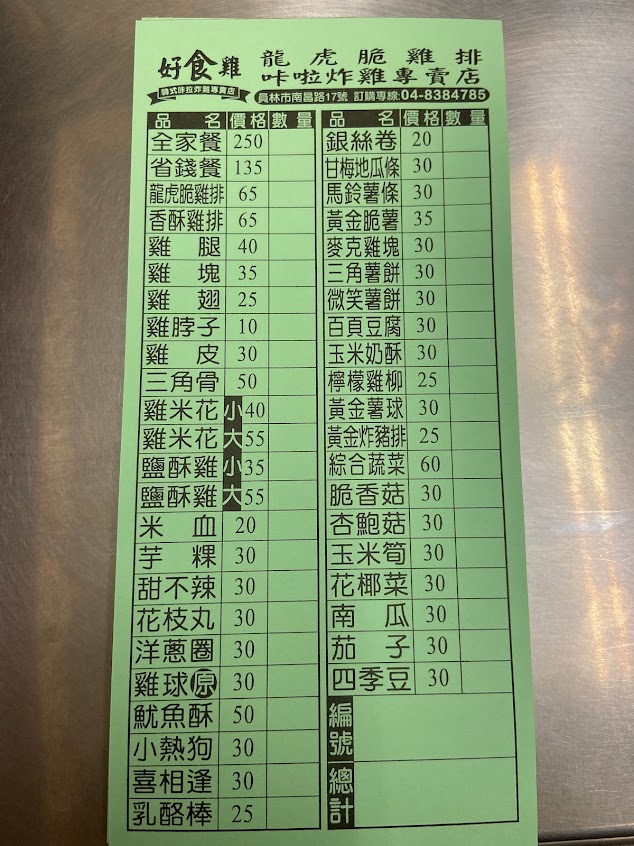 好食雞
韓式咔拉炸雞專賣店
龍虎脆雞排
咔啦炸雞專賣店
員林市南昌路17號 訂購專線:04-8384785
品名 價格 數量
全家餐 250
省錢餐 135
龍虎脆雞排 65
香酥雞排 65
雞腿 40
雞塊 35
雞翅 25
雞脖子 10
雞皮 30
三角骨 50
雞米花 小 40
雞米花 大 55
鹽酥雞 小 35
鹽酥雞 大 55
米血 20
芋粿 30
甜不辣 30
花枝丸 30
洋蔥圈 30
雞球 原 30
魷魚酥 50
小熱狗 30
喜相逢 30
乳酪棒 25
品名 價格 數量
銀絲卷 20
甘梅地瓜條 30
馬鈴薯條 30
黃金脆薯 35
麥克雞塊 30
三角薯餅 30
微笑薯餅 30
百頁豆腐 30
玉米奶酥 30
檸檬雞柳 25
黃金薯球 30
黃金炸豬排 25
綜合蔬菜 60
脆香菇 30
杏鮑菇 30
玉米筍 30
花椰菜 30
南瓜 30
茄子 30
四季豆 30
編號
總計